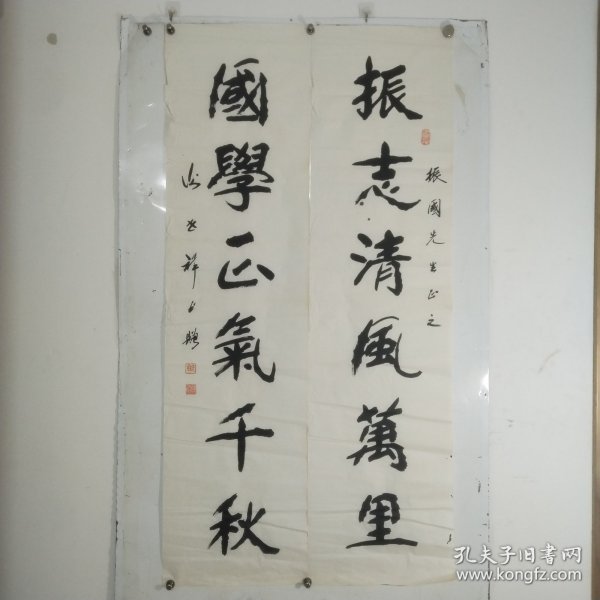 振志清風萬里
振國先生正之
國學正氣千秋
祥
孔夫子旧书网
www.kongfz.com